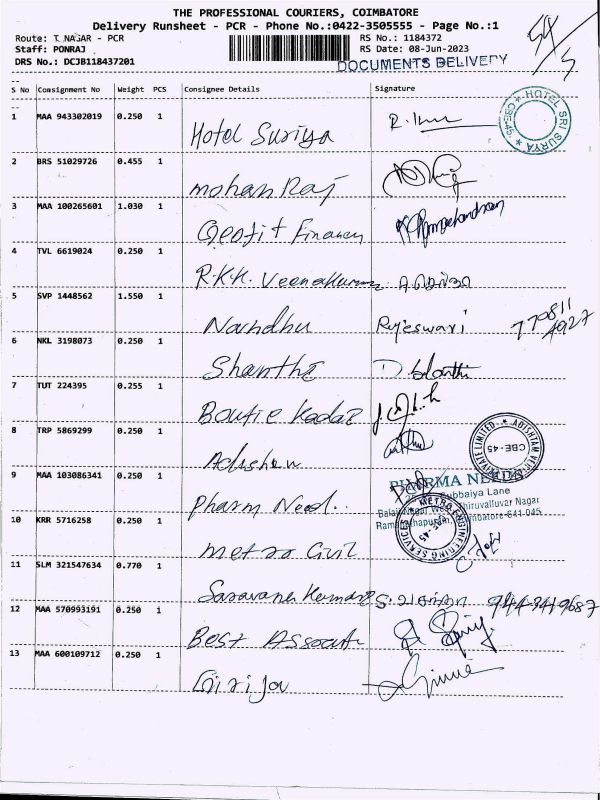 THE PROFESSIONAL COURIERS, COIMBATORE
Delivery Runsheet - PCR - Phone No.:0422-3505555 - Page No.:1
Route: T NAGAR - PCR RS No.: 1184372
Staff: PONRAJ RS Date: 08-Jun-2023
DRS No.: DCJB118437201 DOCUMENTS DELIVERY
S No Consignment No Weight PCS Consignee Details Signature
1 MAA 943302019 0.250 1 Hotel Suriya
HOTEL SRI SURYA * CBE-45 *
2 BRS 51029726 0.455 1 mohan Raj
3 MAA 100265601 1.030 1 Finance
4 TVL 6619024 0.250 1 R.K.K. Veenakumar
5 SVP 1448562 1.550 1 Nandhu Rajeswari 770811 4927
6 NKL 3198073 0.250 1 Shanthi
7 TUT 224395 0.255 1
8 TRP 5869299 0.250 1
PRIVATE LIMITED CBE-45
9 MAA 103086341 0.250 1 Pharm Need..
PHARMA NEEDS
Subbaiya Lane
Thiruvalluvar Nagar
Ramanathapuram, Coimbatore-641 045
10 KRR 5716258 0.250 1 metro Civil
METRO ENGINEERING SERVICES
11 SLM 321547634 0.770 1 Saravana Kumar
12 MAA 570993191 0.250 1 Best
13 MAA 600109712 0.250 1 Girija